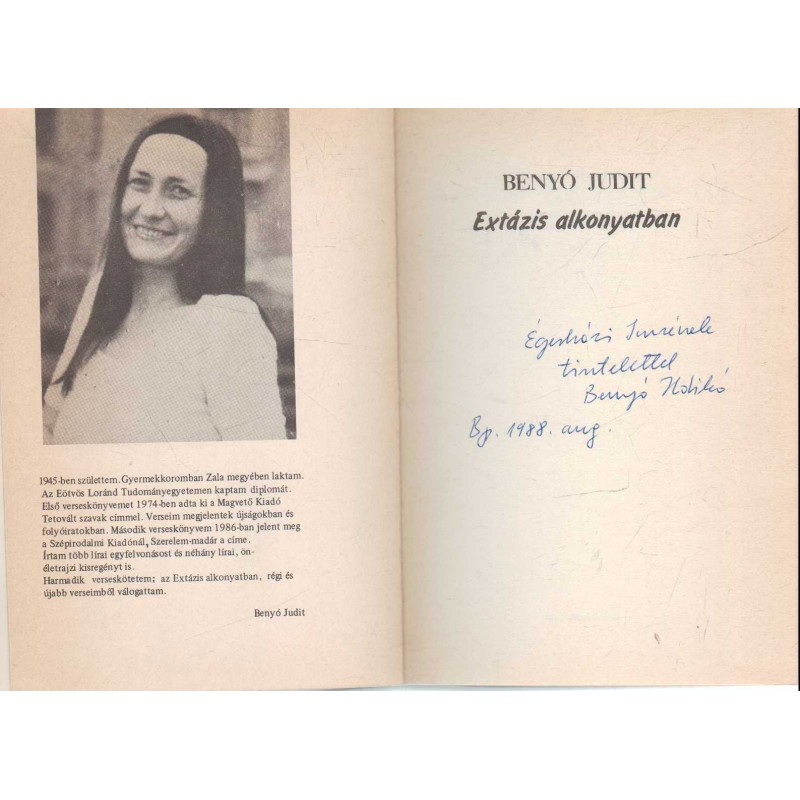 1945-ben születtem. Gyermekkoromban Zala megyében laktam.
Az Eötvös Loránd Tudományegyetemen kaptam diplomát.
Első verseskönyvemet 1974-ben adta ki a Magvető Kiadó
Tetovált szavak címmel. Verseim megjelentek újságokban és
folyóiratokban. Második verseskönyvem 1986-ban jelent meg
a Szépirodalmi Kiadónál, Szerelem-madár a címe.
Írtam több lírai egyfelvonásost és néhány lírai, ön-
életrajzi kisregényt is.
Harmadik verseskötetem; az Extázis alkonyatban, régi és
újabb verseimből válogattam.
Benyó Judit
BENYÓ JUDIT
Extázis alkonyatban
Imrének
tisztelettel
Benyó Ildikó
Bp. 1988. aug.